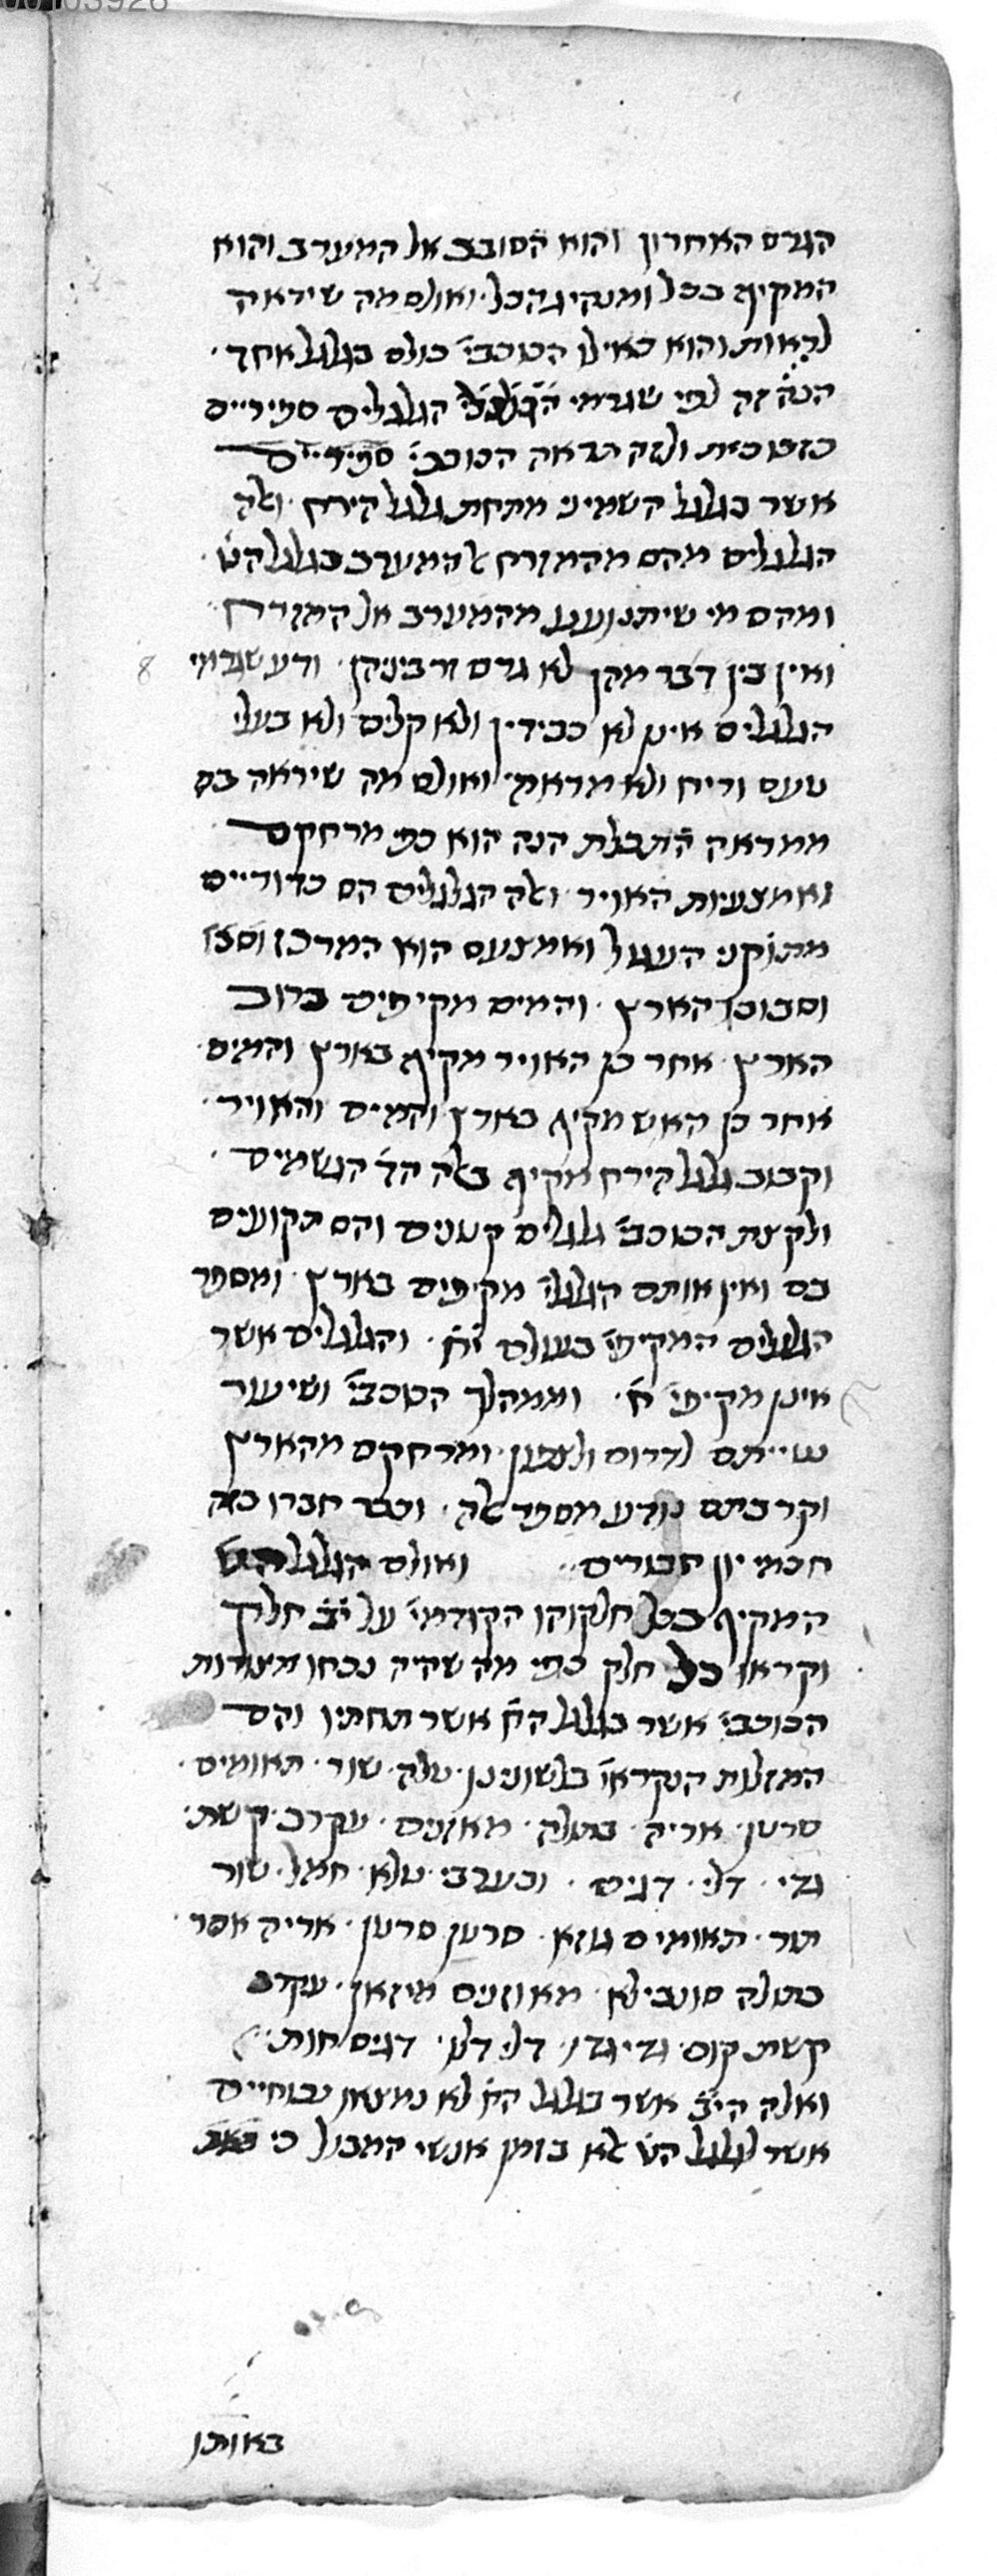 הגרם האחרון והוא הסובב אל המערב והוא
המקיף בכל ומנהיג הכל ואולם מה שיראה
לראות והוא כאילו הכוכבי׳ כולם בגלגל אחד ·
הנה זה לפי שגרמי הגלגלים ספיריים
כזכוכית ולזה תראה הכוכבי׳ ספיריים
אשר בגלגל השמיני מתחת גלגל הירח · ואלה
הגלגלים מהם מהמזרח להמערב כגלגל הט׳ ·
ומהם מי שיתנועע מהמערב אל המזרח ·
ואין בין דבר מהן לא גרם זר ביניהן · ודע שגרמי
הגלגלים אינן לא כבידין ולא קלים ולא בעלי
טעם וריח ולא מראה · ואולם מה שיראה בם
ממראה התכלת הנה הוא כפי מרחקם
ואמצעיות האויר · ואלה הגלגלים הם כדוריים
מתוקני העגול ואמצעם הוא המרכז
וסבובן הארץ · והמים מקיפים ברוב
הארץ · אחר כן האויר מקיף בארץ והמים ·
אחר כן האש מקיף בארץ והמים והאויר ·
וקבוב גלגל הירח מקיף באלה הד׳ הגשמים ·
ולקצת הכוכבי׳ גלגלים קטנים והם תקועים
בם ואין אותם הגלגלי׳ מקיפים בארץ · ומספר
הגלגלים המקיפי׳ בעולם י״ח · והגלגלים אשר
אינן מקיפי׳ ח׳ · וממהלך הכוכבי׳ ושיעור
לדרום ולצפון · ומרחקם מהארץ
וקרבתם נודע מספר אלה · וכבר חברו בזה
חכמי יון חבורים · ואולם הגלגל הט׳
המקיף בכל חלקוהו הקודמי׳ על י״ב חלקי׳
וקראו כל חלק כפי מה שהיה נכחו מצורות
הכוכבי׳ אשר בגלגל הח׳ אשר תחתיו והם
המזלות הנקראי׳ בלשונינו · טלה · שור · תאומים ·
סרטן · אריה · בתולה · מאזנים · עקרב · קשת ·
גדי · דלי · דגים · ובערבי · טלא · חמל · שור
תור · תאומים גוזא · סרטן סרטן · אריה אסד ·
בתולה סונבילא · מאוזנים מיזאן · עקרב
קשת קוס · גדי גדי · דלי דלו · דגים חות ·
ואלה הי״ב אשר בגלגל הח׳ לא נמצאו נכוחיים
אשר לגלגל הט׳ אלא בזמן אנשי המבול כי
באותו